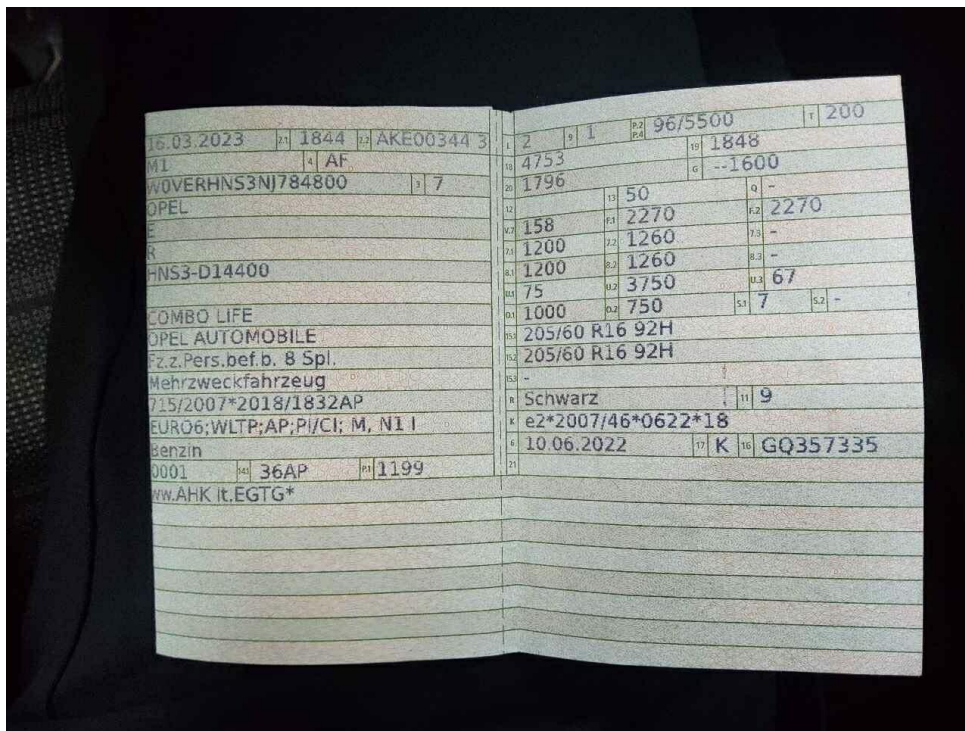 16.03.2023 2.1 1844 2.2 AKE00344 3
M1 4 AF
W0VERHNS3NJ784800 3 7
OPEL
E
R
HNS3-D14400
COMBO LIFE
OPEL AUTOMOBILE
Fz.z.Pers.bef.b. 8 Spl.
Mehrzweckfahrzeug
715/2007*2018/1832AP
EURO6;WLTP;AP;PI/CI; M, N1 I
Benzin
0001 14.1 36AP P.1 1199
ww.AHK lt.EGTG*
L 2 9 1 P.2 P.4 96/5500 T 200
18 4753 19 1848
20 1796 G --1600
12 13 50 Q -
V.7 158 F.1 2270 F.2 2270
7.1 1200 7.2 1260 7.3 -
8.1 1200 8.2 1260 8.3 -
U.1 75 U.2 3750 U.3 67
O.1 1000 O.2 750 S.1 7 S.2 -
15.1 205/60 R16 92H
15.2 205/60 R16 92H
15.3 -
R Schwarz 11 9
K e2*2007/46*0622*18
6 10.06.2022 17 K 16 GQ357335
21